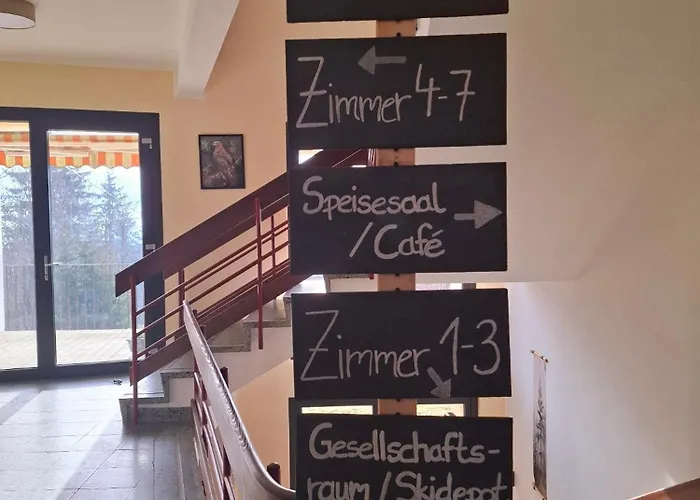 Zimmer 4-7
Speisesaal
/Café
Zimmer 1-3
Gesellschafts-
raum/Skidepot